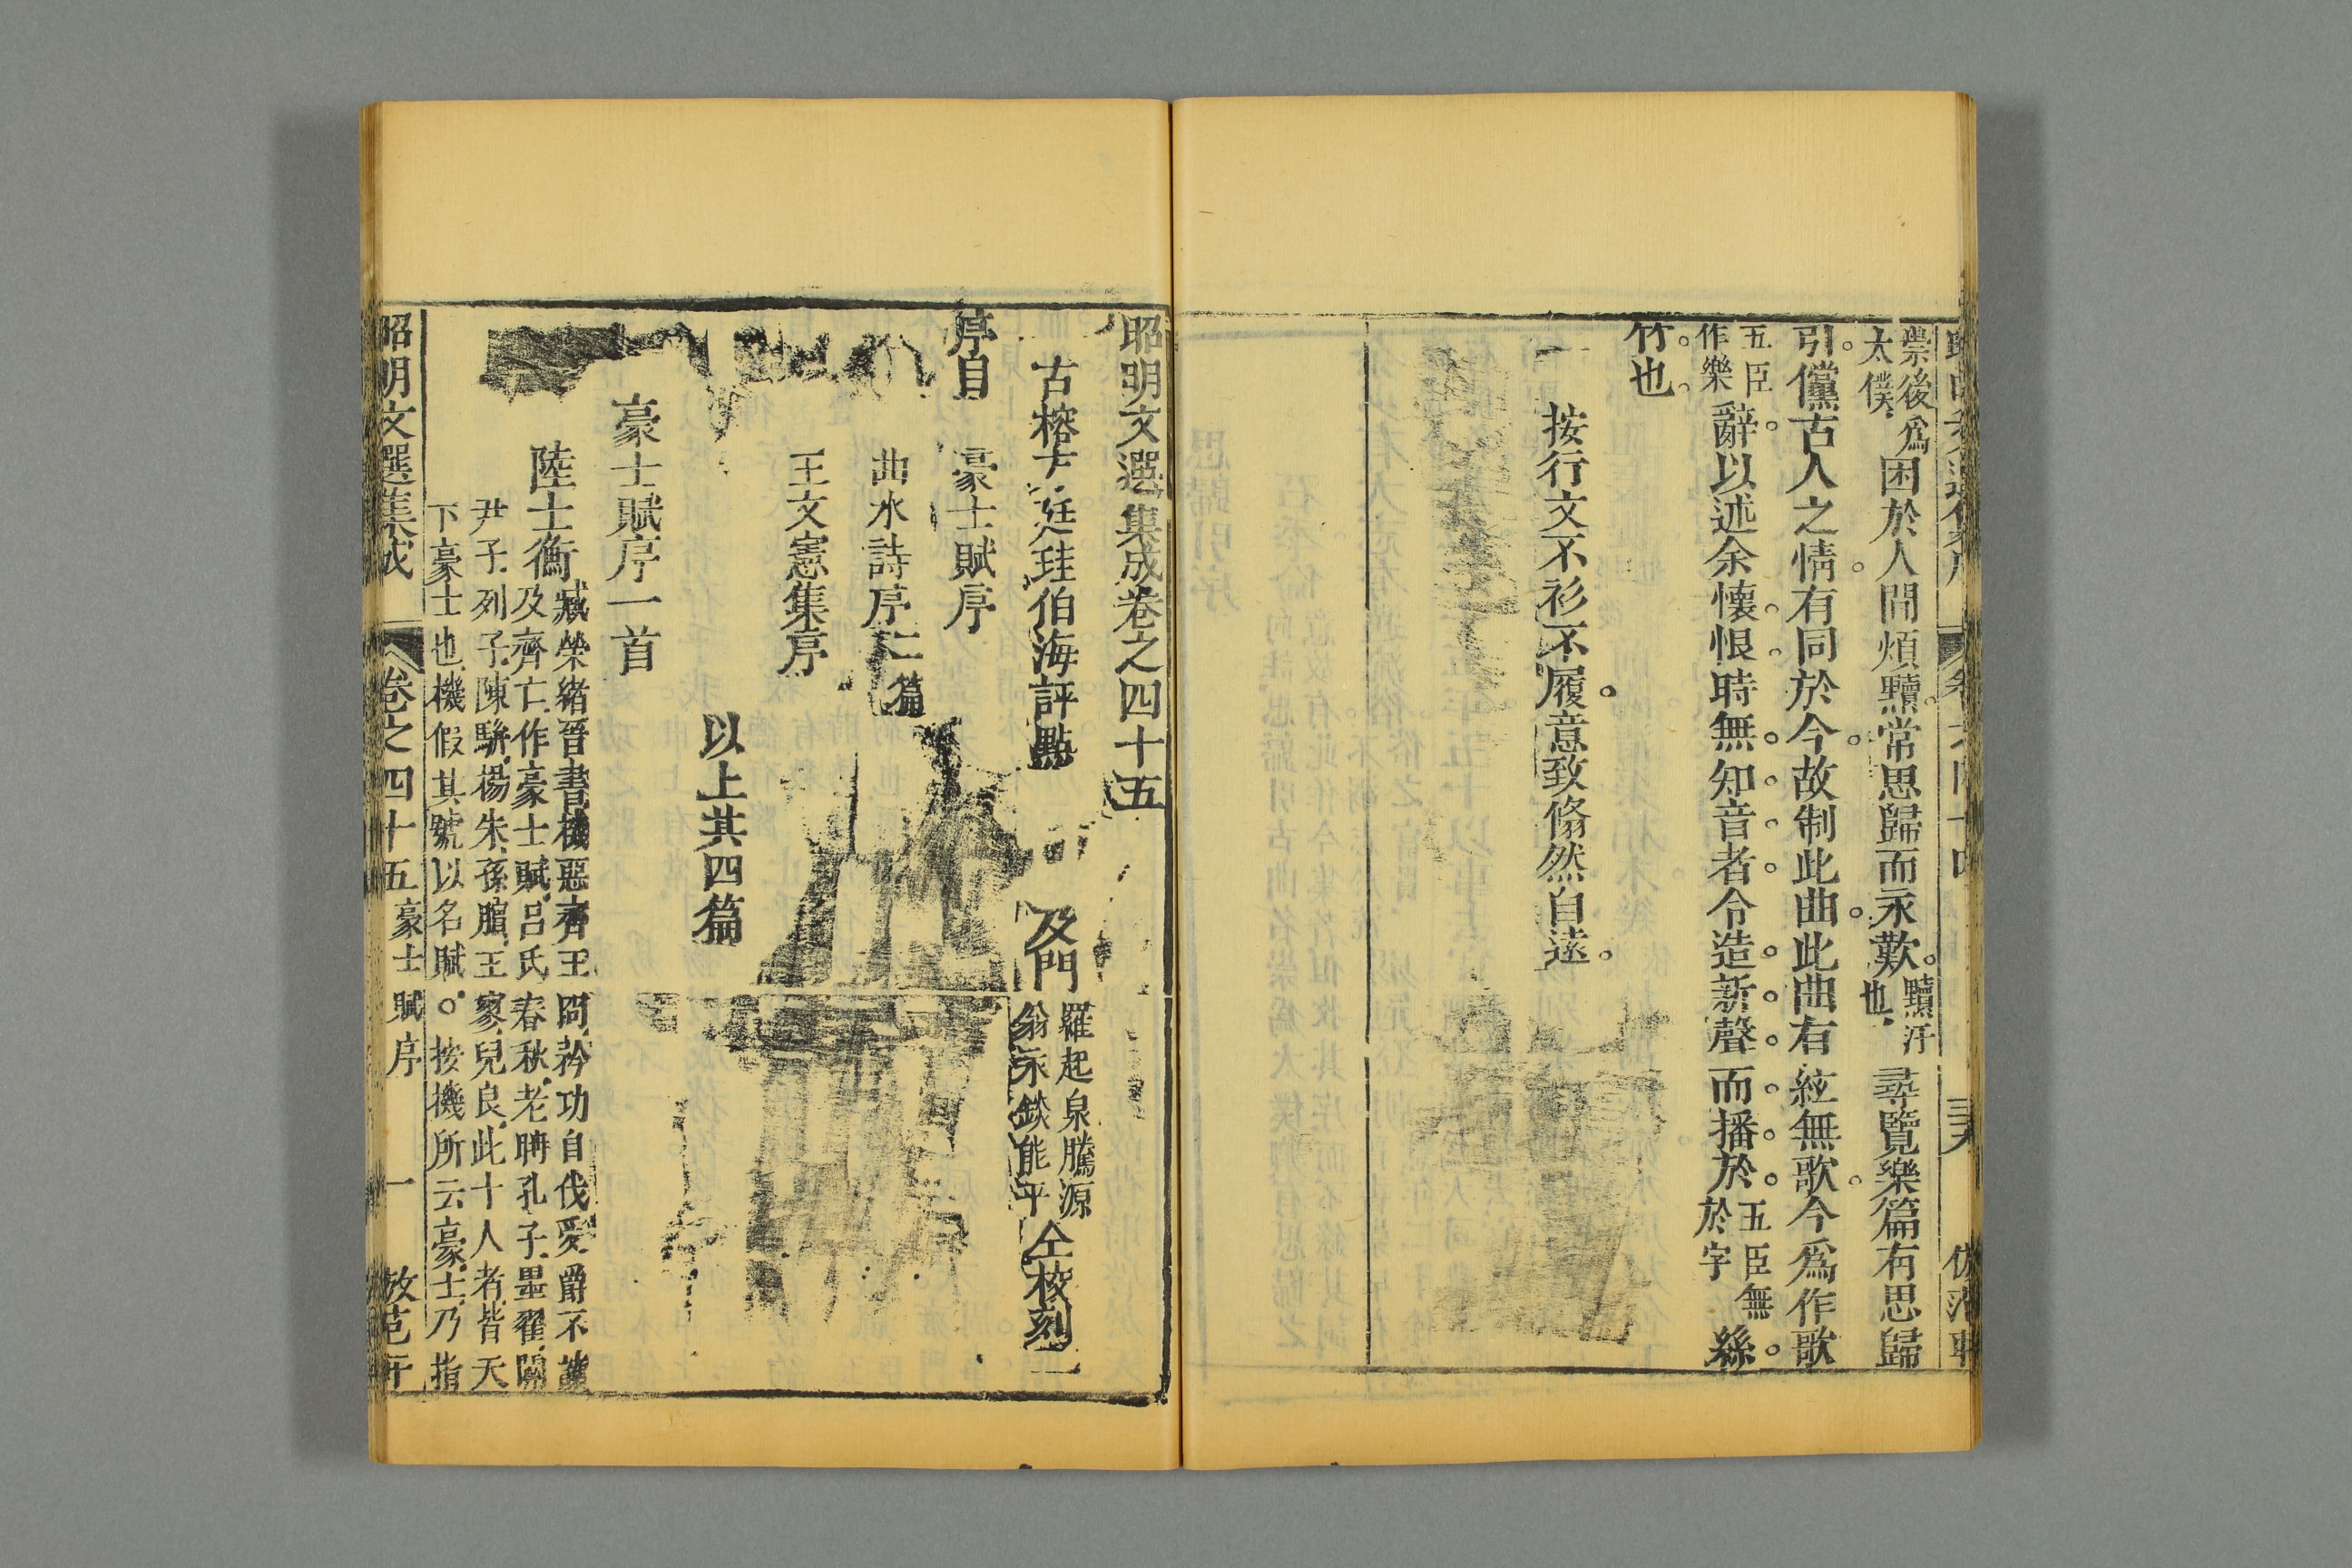 崇後爲太僕困於人間煩黷常思歸而永歎黷汙也尋覽樂篇有思歸
引儻古人之情有同於今故制此曲此曲有絃無歌今爲作歌
五臣作樂辭以述余懷恨時無知音者令造新聲而播於五臣無於字絲
竹也
按行文不衫不履意致翛然自遠
昭明文選集成卷之四十五
古榕方廷珪伯海評點
及門
羅起泉騰源
翁永錟能平
仝校刻
序自
豪士賦序
曲水詩序二篇
王文憲集序
以上共四篇
豪士賦序一首
陸士衡
臧榮緒晉書機惡齊王冏矜功自伐受爵不讓
及齊亡作豪士賦呂氏春秋老聃孔子墨翟關
尹子列子陳駢楊朱孫臏王寥兒良此十人者皆天
下豪士也機假其號以名賦○按機所云豪士乃指
昭明文選集成 卷之四十五 豪士賦序 一 倣范軒